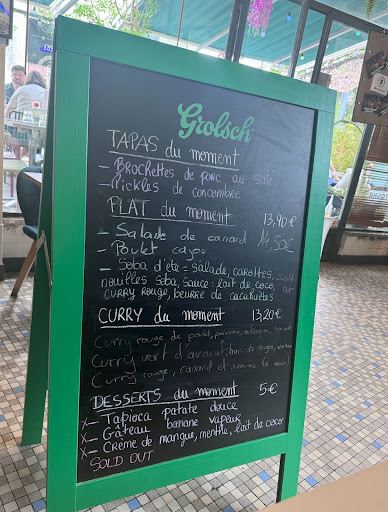 Grolsch
TAPAS du moment
- Brochettes de porc au saté
- Pickles de concombre
PLAT du moment 13,90€
- Salade de canard 14,50€
- Poulet cajou
- Soba d'été = salade, carottes,
nouilles soba, sauce = lait de coco,
curry rouge, beurre de cacahuètes
CURRY du moment 13,20€
Curry rouge de poulet, poivrons,
Curry vert d'avocat, haricots rouges,
Curry rouge, canard et
DESSERTS du moment 5€
X- Tapioca patate douce
X- Gâteau banane vapeur
X- Crème de mangue, menthe, lait de coco
SOLD OUT